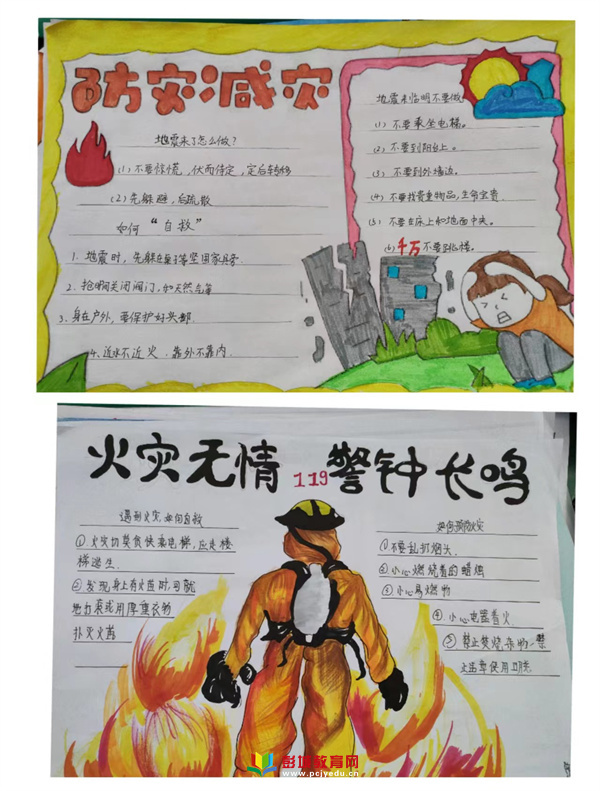 防灾减灾
地震来了怎么做？
(1)不要惊慌，伏而待定，定后转移
(2)先躲避，后疏散
如何“自救”
1. 地震时，先躲在桌子等坚固家具旁
2. 抢时间关闭阀门，如天然气等
3. 身在户外，要保护好头部
4、近水不近火，靠外不靠内。
地震来临时不要做
(1) 不要乘坐电梯。
(2) 不要到阳台上。
(3) 不要到外墙边。
(4) 不要找贵重物品，生命宝贵.
(5) 不要在床上和地面中央。
(6) 千万不要跳楼。
火灾无情 119 警钟长鸣
遇到火灾如何自救
① 火灾切莫贪快乘电梯，应走楼
梯逃生.
② 发现身上有火苗时，可就
地打滚或用厚重衣物
扑灭火苗
如何预防火灾
①不要乱扔烟头.
②小心燃烧着的蜡烛
③小心易燃物
④ 小心电器着火.
⑤ 禁止焚烧杂物
彭城教育网
www.pcjyedu.cn